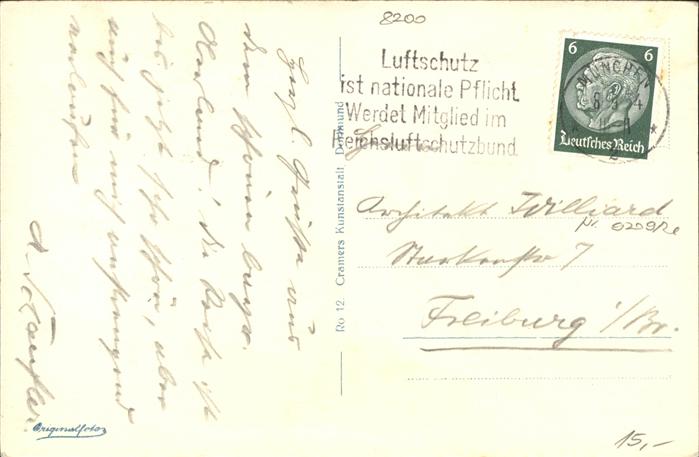 8200
Luftschutz
ist nationale Pflicht
Werdet Mitglied im
Reichsluftschutzbund
6 6
Deutsches Reich
MÜNCHEN
Herzl. Grüße aus
dem schönen bayr.
Oberland! Die Reise ist
bis jetzt sehr schön, aber
auch für mich anstrengend
verlaufen
A.
Architekt Williard
7
Freiburg i/Br.
Ro 12. Cramers Kunstanstalt Dortmund
Originalfoto
15,-